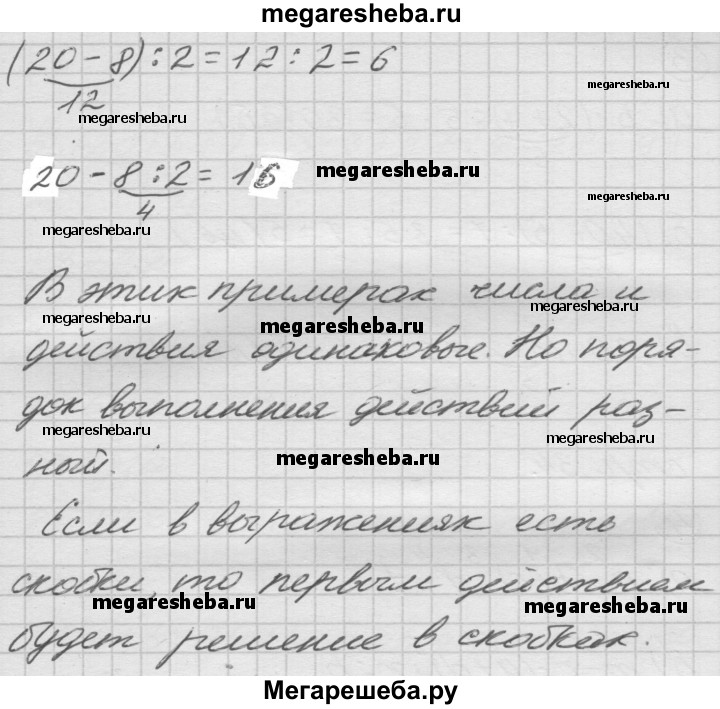 megaresheba.ru
(20 - 8) : 2 = 12 : 2 = 6
megaresheba.ru
12
megaresheba.ru
20 - 8 : 2 = 16
megaresheba.ru
megaresheba.ru
4
megaresheba.ru
В этих примерах числа и
megaresheba.ru
megaresheba.ru
megaresheba.ru
действия одинаковые. Но поря-
док выполнения действий раз-
megaresheba.ru
megaresheba.ru
ный.
megaresheba.ru
Если в выражениях есть
скобки, то первым действием
megaresheba.ru
megaresheba.ru
будет решение в скобках.
Мегарешеба.ру